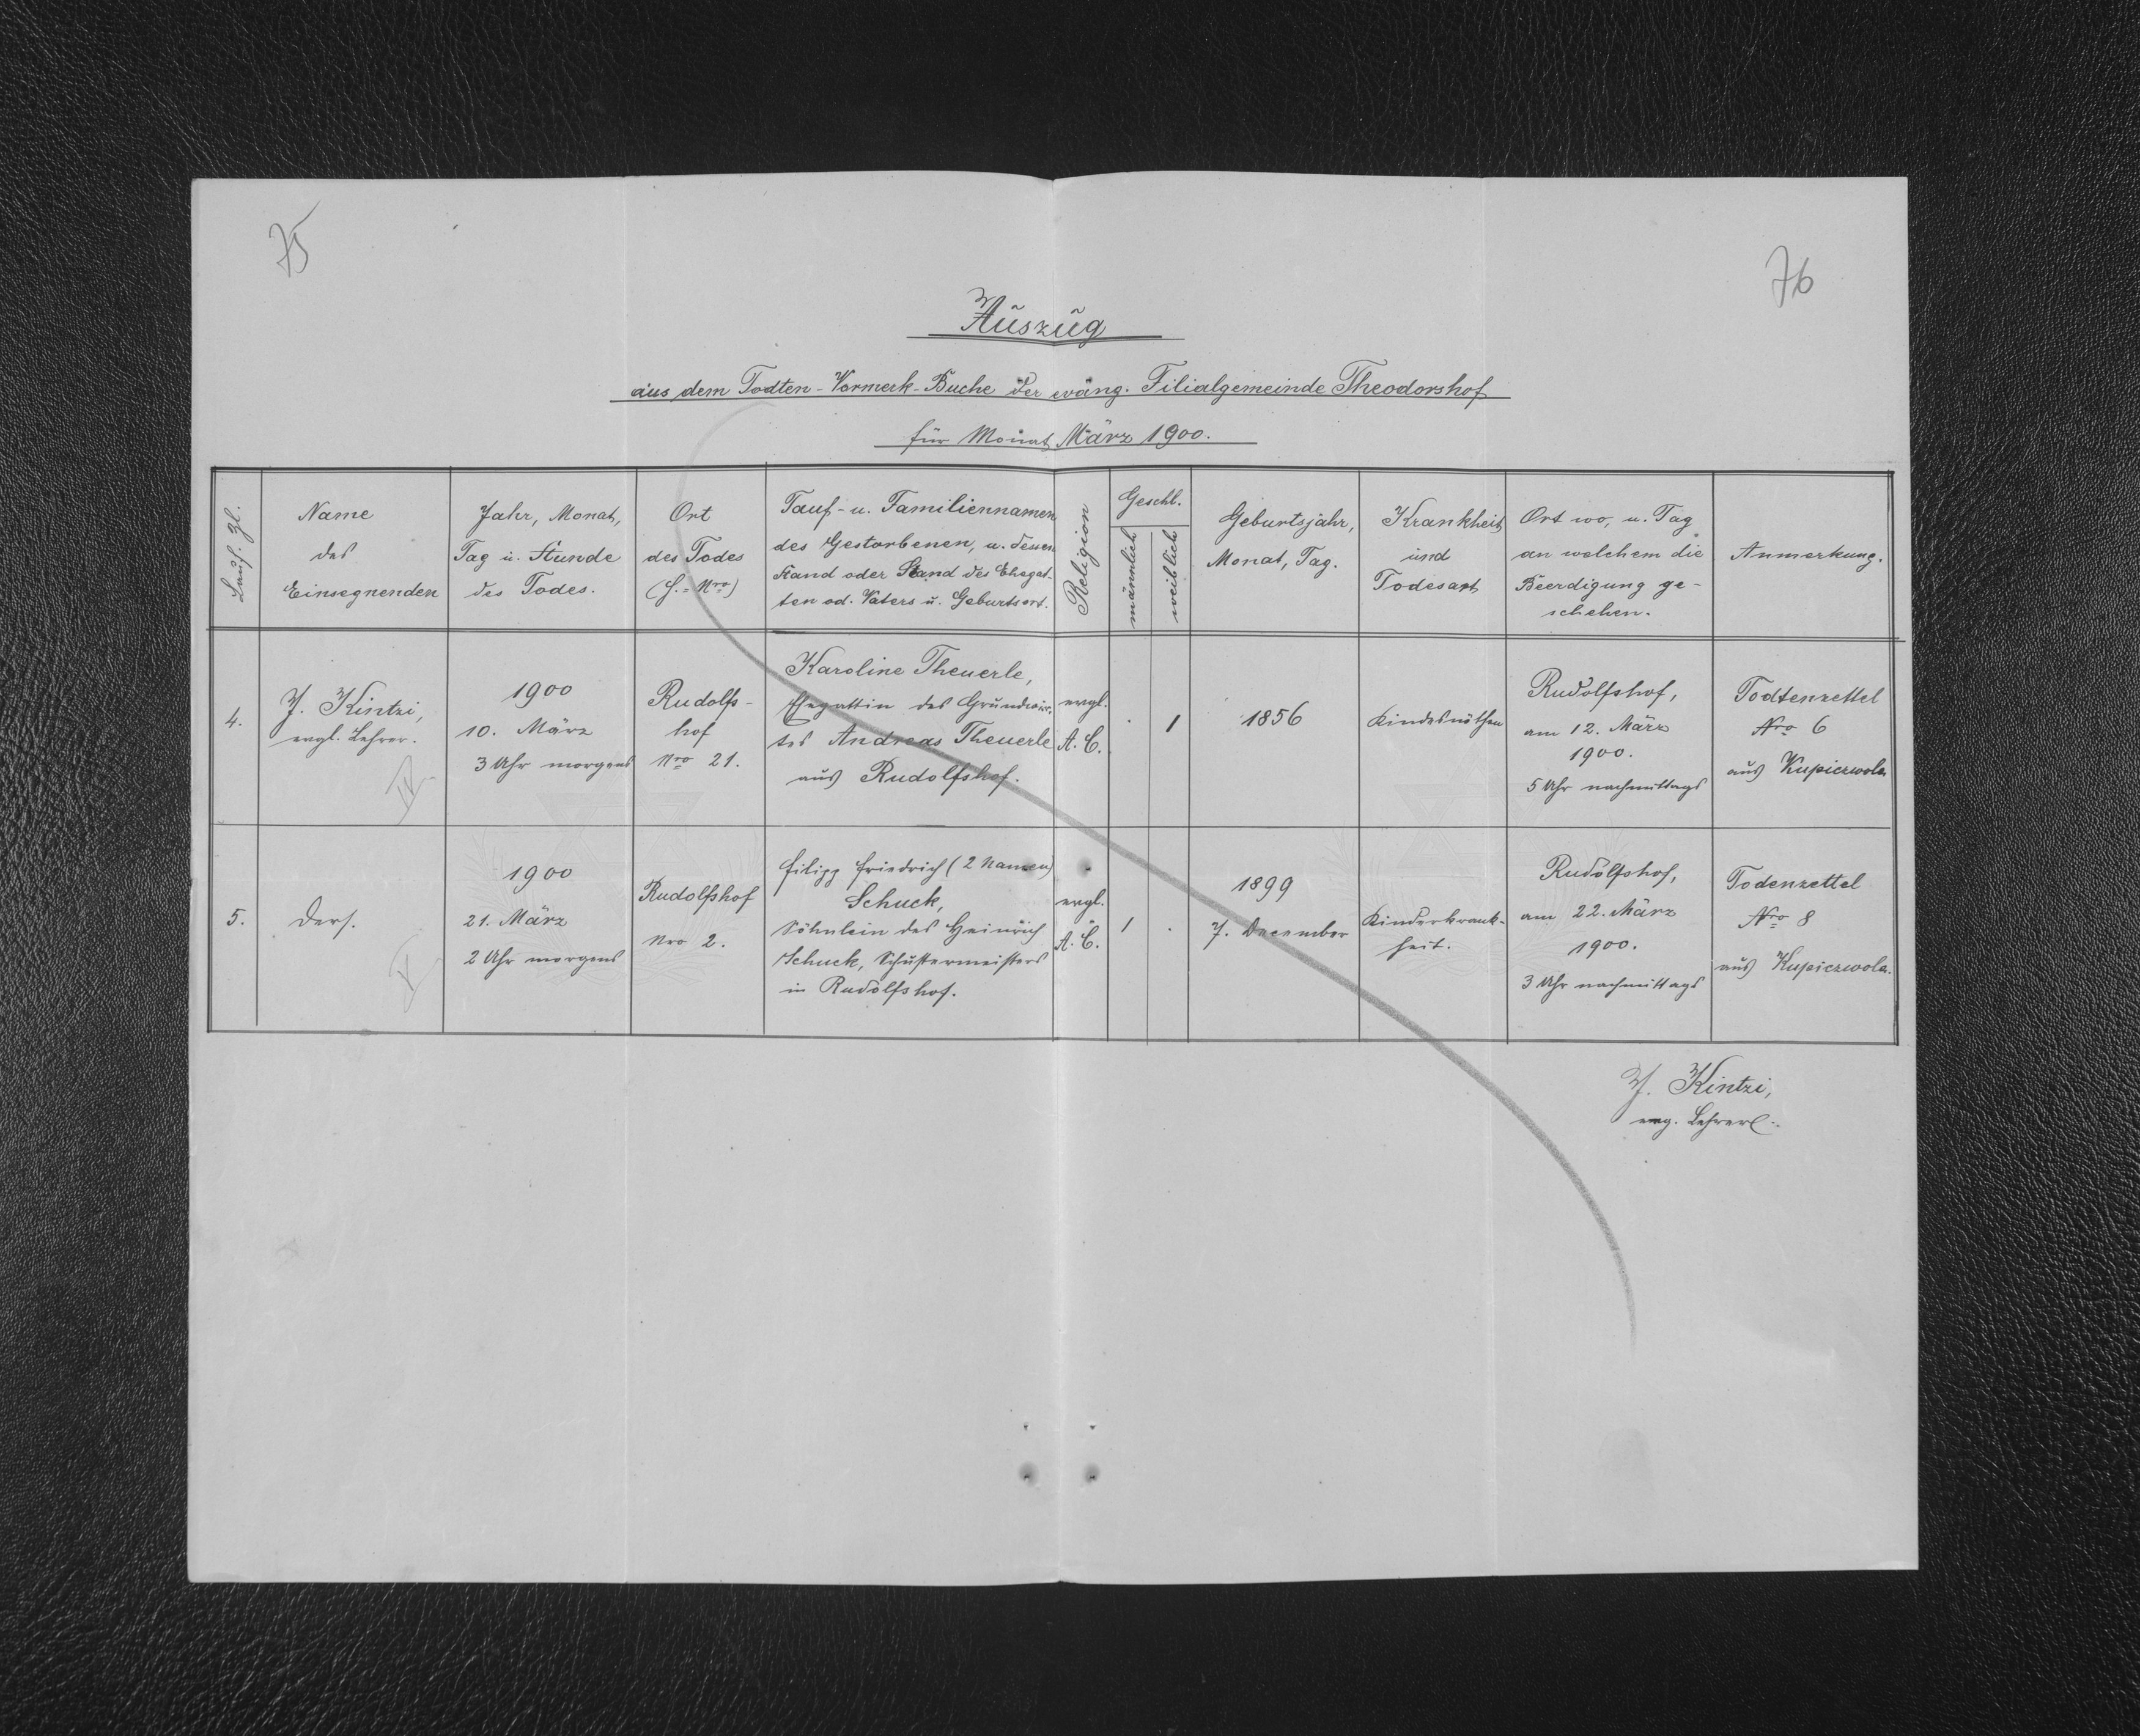 75
76
Auszug
aus dem Todten-Vormerk-Buche der evang. Filialgemeinde Theodorshof
für Monat März 1900.
Lauf. Zl.
Name
des
Einsegnenden
Jahr, Monat,
Tag u. Stunde
des Todes.
Ort
des Todes
(H.-Nro)
Tauf- u. Familiennamen
des Gestorbenen, u. dessen
Stand oder Stand des Ehegat-
ten od. Vaters u. Geburtsort.
Religion
Geschl.
männlich
weiblich
Geburtsjahr,
Monat, Tag.
Krankheit
und
Todesart
Ort wo, u. Tag
an welchem die
Beerdigung ge-
schehen.
Anmerkung.
4.
J. Kintzi,
evgl. Lehrer.
IV
1900
10. März
3 Uhr morgens
Rudolfs-
hof
Nro 21.
Karoline Theuerle,
Ehegattin des Grundwir-
tes Andreas Theuerle
aus Rudolfshof.
evgl.
A. C.
.
1
1856
Kindesnöthen
Rudolfshof,
am 12. März
1900.
5 Uhr nachmittags
Todtenzettel
Nro 6
aus Kupiczwola
5.
Ders.
V
1900
21. März
2 Uhr morgens
Rudolfshof
Nro 2.
Filipp Friedrich (2 Namen)
Schuck,
Söhnlein des Heinrich
Schuck, Schustermeisters
in Rudolfshof.
evgl.
A. C.
1
.
1899
7. December
Kinderkrank-
heit.
Rudolfshof,
am 22. März
1900.
3 Uhr nachmittags
Todenzettel
Nro 8
aus Kupiczwola.
J. Kintzi,
evg. Lehrer.